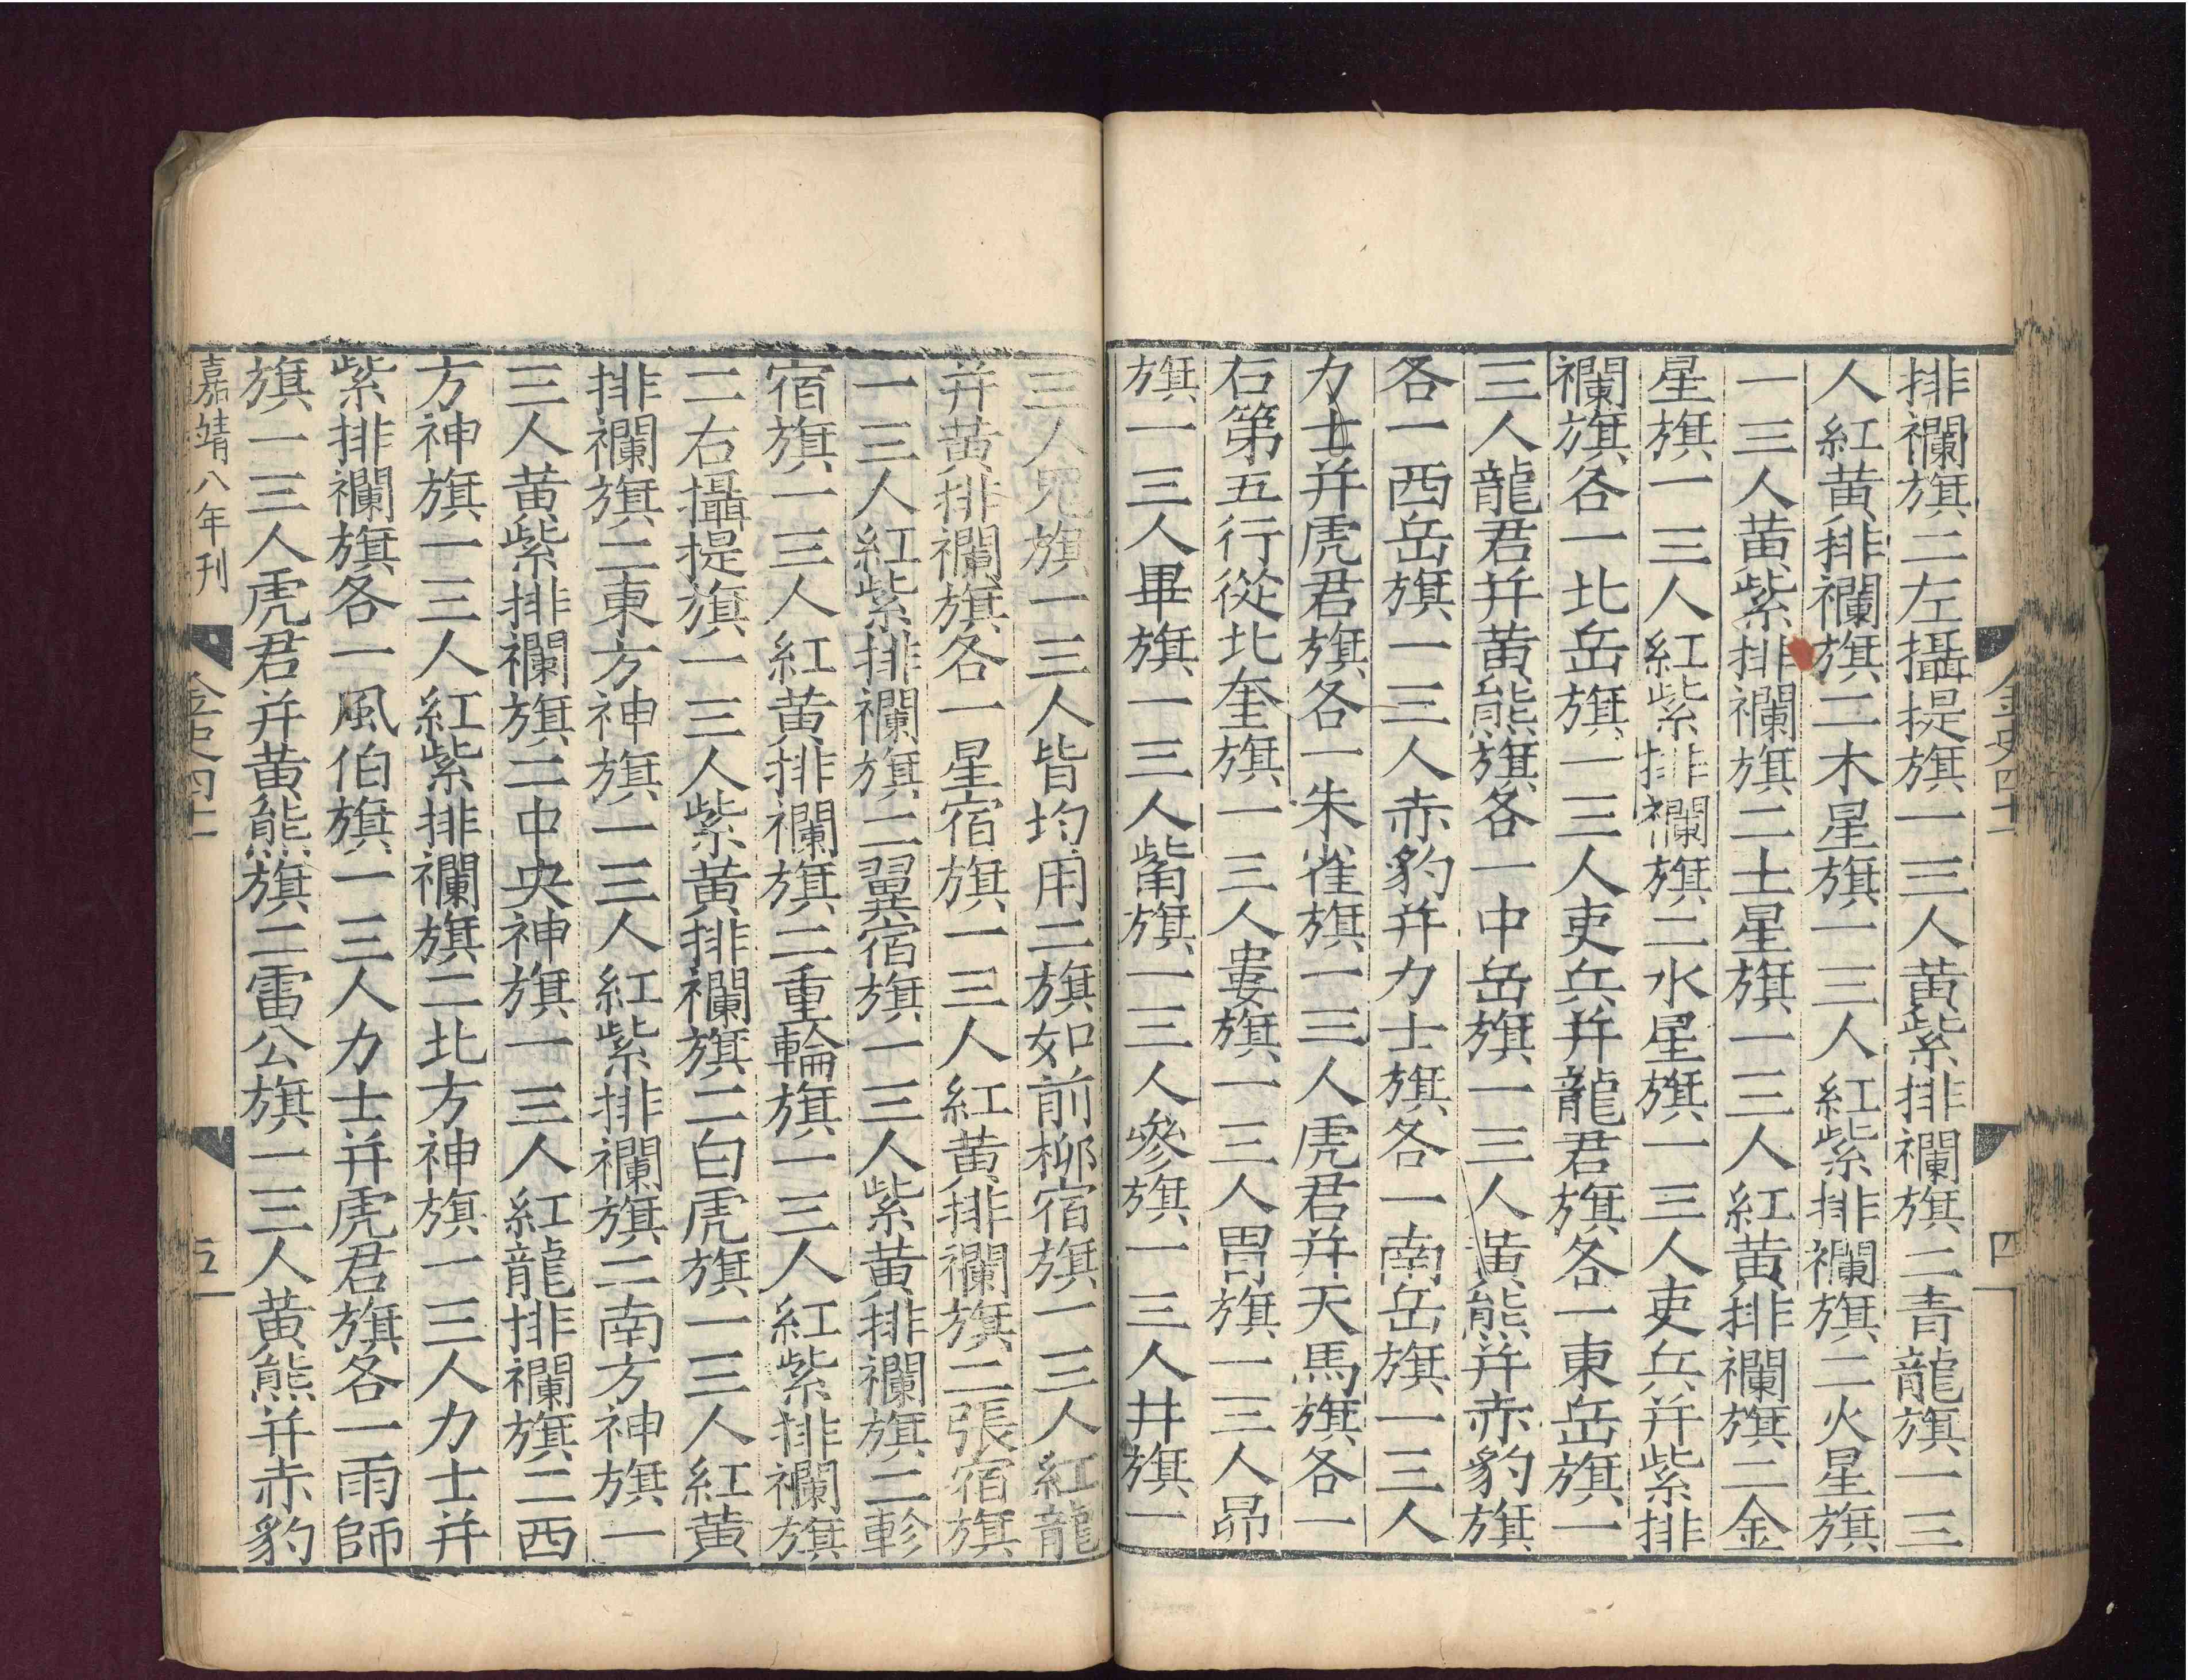 排襴旗二左攝提旗一三人黄紫排襴旗二青龍旗一三
人紅黄排襴旗二木星旗一三人紅紫排襴旗二火星旗
一三人黄紫排襴旗二土星旗一三人紅黄排襴旗二金
星旗一三人紅紫排襴旗二水星旗一三人吏兵并紫排
襴旗各一北岳旗一三人吏兵并龍君旗各一東岳旗一
三人龍君并黄熊旗各一中岳旗一三人黄熊并赤豹旗
各一西岳旗一三人赤豹并力士旗各一南岳旗一三人
力士并虎君旗各一朱雀旗一三人虎君并天馬旗各一
右第五行從北奎旗一三人婁旗一三人胃旗一三人昴
旗一三人畢旗一三人觜旗一三人參旗一三人井旗一
金史四十一
四
三人鬼旗一三人皆均用二旗如前柳宿旗一三人紅龍
并黄排襴旗各一星宿旗一三人紅黄排襴旗二張宿旗
一三人紅紫排襴旗二翼宿旗一三人紫黄排襴旗二軫
宿旗一三人紅黄排襴旗二重輪旗一三人紅紫排襴旗
二右攝提旗一三人紫黄排襴旗二白虎旗一三人紅黄
排襴旗二東方神旗一三人紅紫排襴旗二南方神旗一
三人黄紫排襴旗二中央神旗一三人紅龍排襴旗二西
方神旗一三人紅紫排襴旗二北方神旗一三人力士并
紫排襴旗各一風伯旗一三人力士并虎君旗各一雨師
旗一三人虎君并黄熊旗二雷公旗一三人黄熊并赤豹
嘉靖八年刊
金史四十一
五